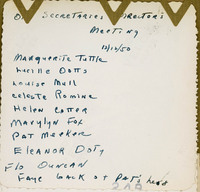 Secretaries Director's
Meeting
10/10/50
Marguerite Tuttle
Lucille Dotts
Louise Mull
Celeste Romine
Helen Cotter
Marylyn Fox
Pat Meeker
Eleanor Doty
Flo Duncan
Faye back of Pat's head